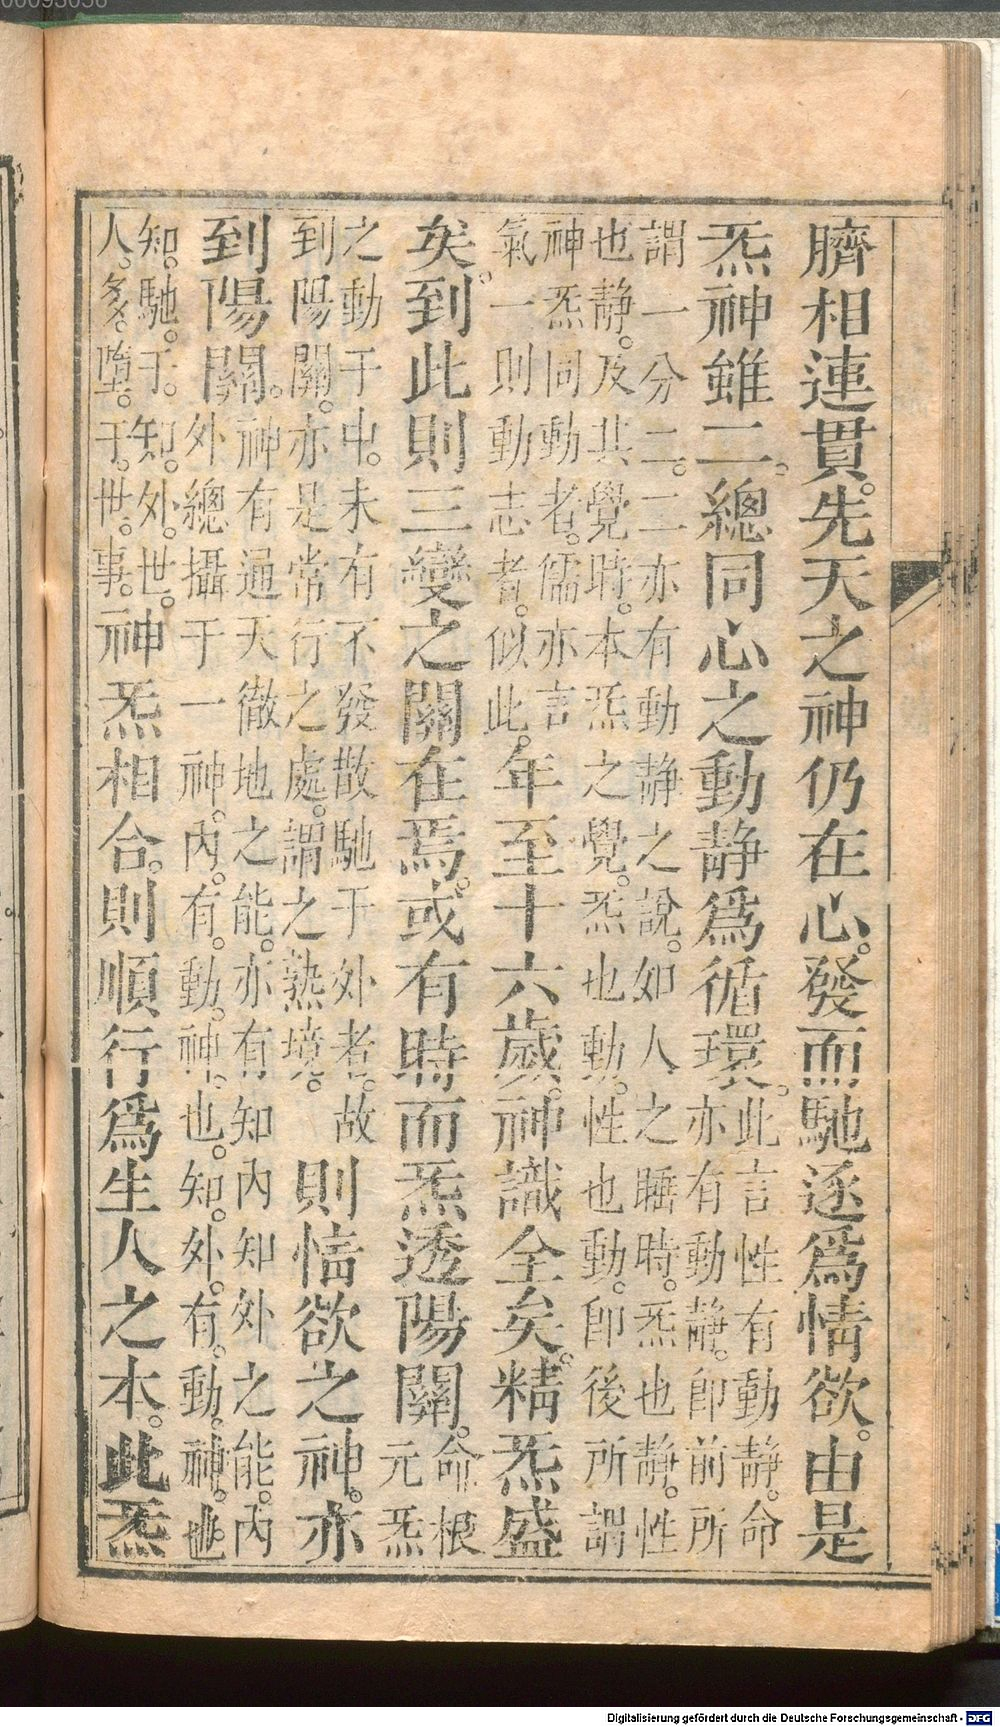 臍相連貫。先天之神仍在心。發而馳逐為情欲。由是
炁神雖二。總同心之動靜為循環。此言性有動靜。命
亦有動靜。即前所
謂一分二。二亦有動靜之說。如人之睡時。炁也靜。性
也靜。及其覺時。本炁之覺。炁也動。性也動。即後所謂
神炁同動者。儒亦言
氣一則動志者。似此。年至十六歲。神識全矣。精炁盛
矣。到此則三變之關在焉。或有時而炁透陽關。命根
元炁
之動于中。未有不發散馳于外者。故
到陽關。亦是常行之處。謂之熟境。則情欲之神。亦
到陽關。神有通天徹地之能。亦有知內知外之能。內
外總攝于一神。內。有。動。神。也。知。外。有。動。神。也。
知。馳。于。知。外。世。
人。多。墮。于。世。事。神炁相合。則順行為生人之本。此炁
00093056
Digitalisierung gefördert durch die Deutsche Forschungsgemeinschaft - DFG